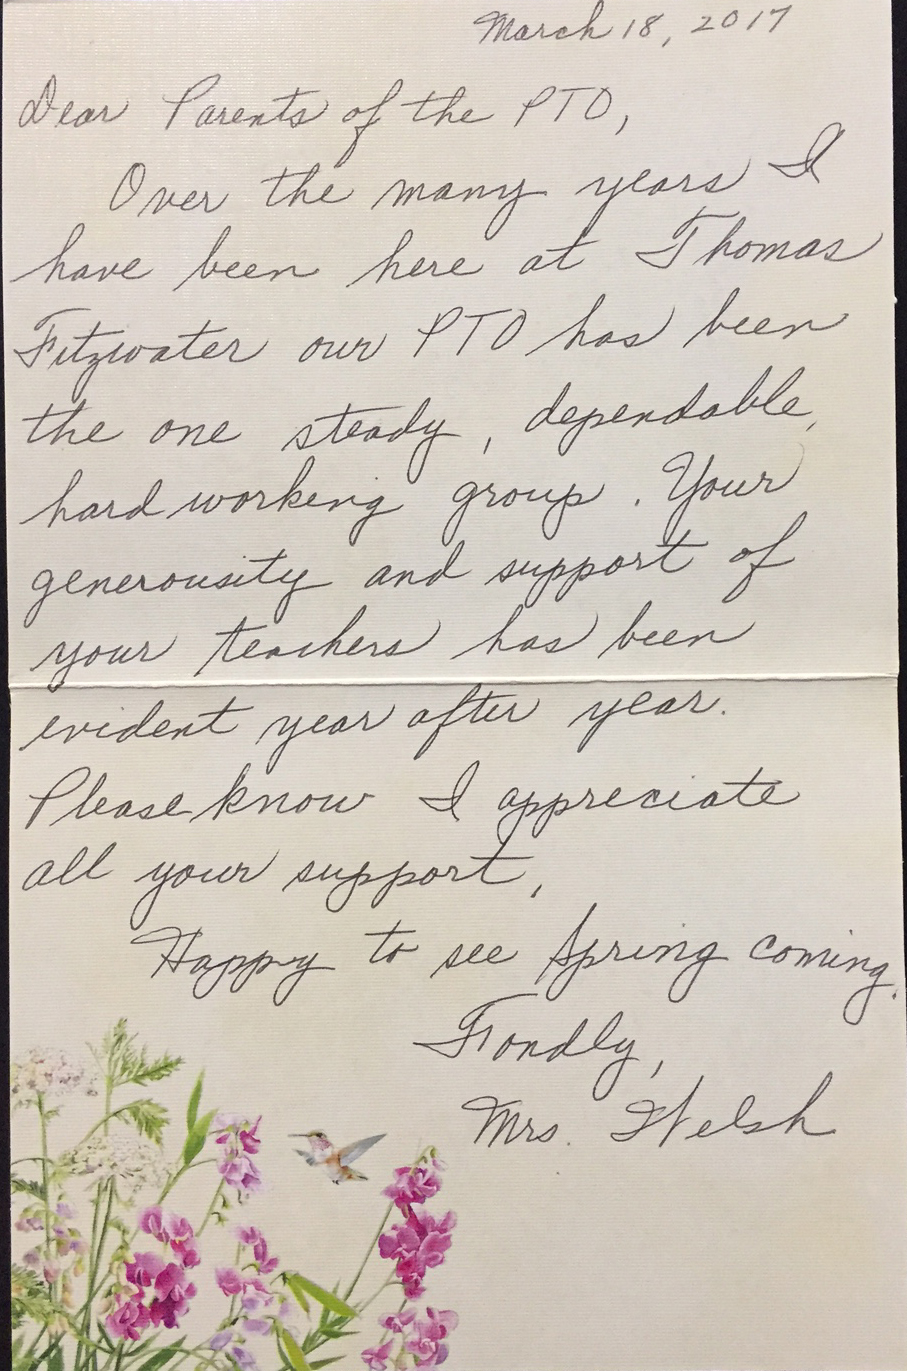 March 18, 2017
Dear Parents of the PTO,
Over the many years I
have been here at Thomas
Fitzwater our PTO has been
the one steady, dependable,
hard working group. Your
generousity and support of
your teachers has been
evident year after year.
Please know I appreciate
all your support.
Happy to see Spring coming.
Fondly,
Mrs. Welsh